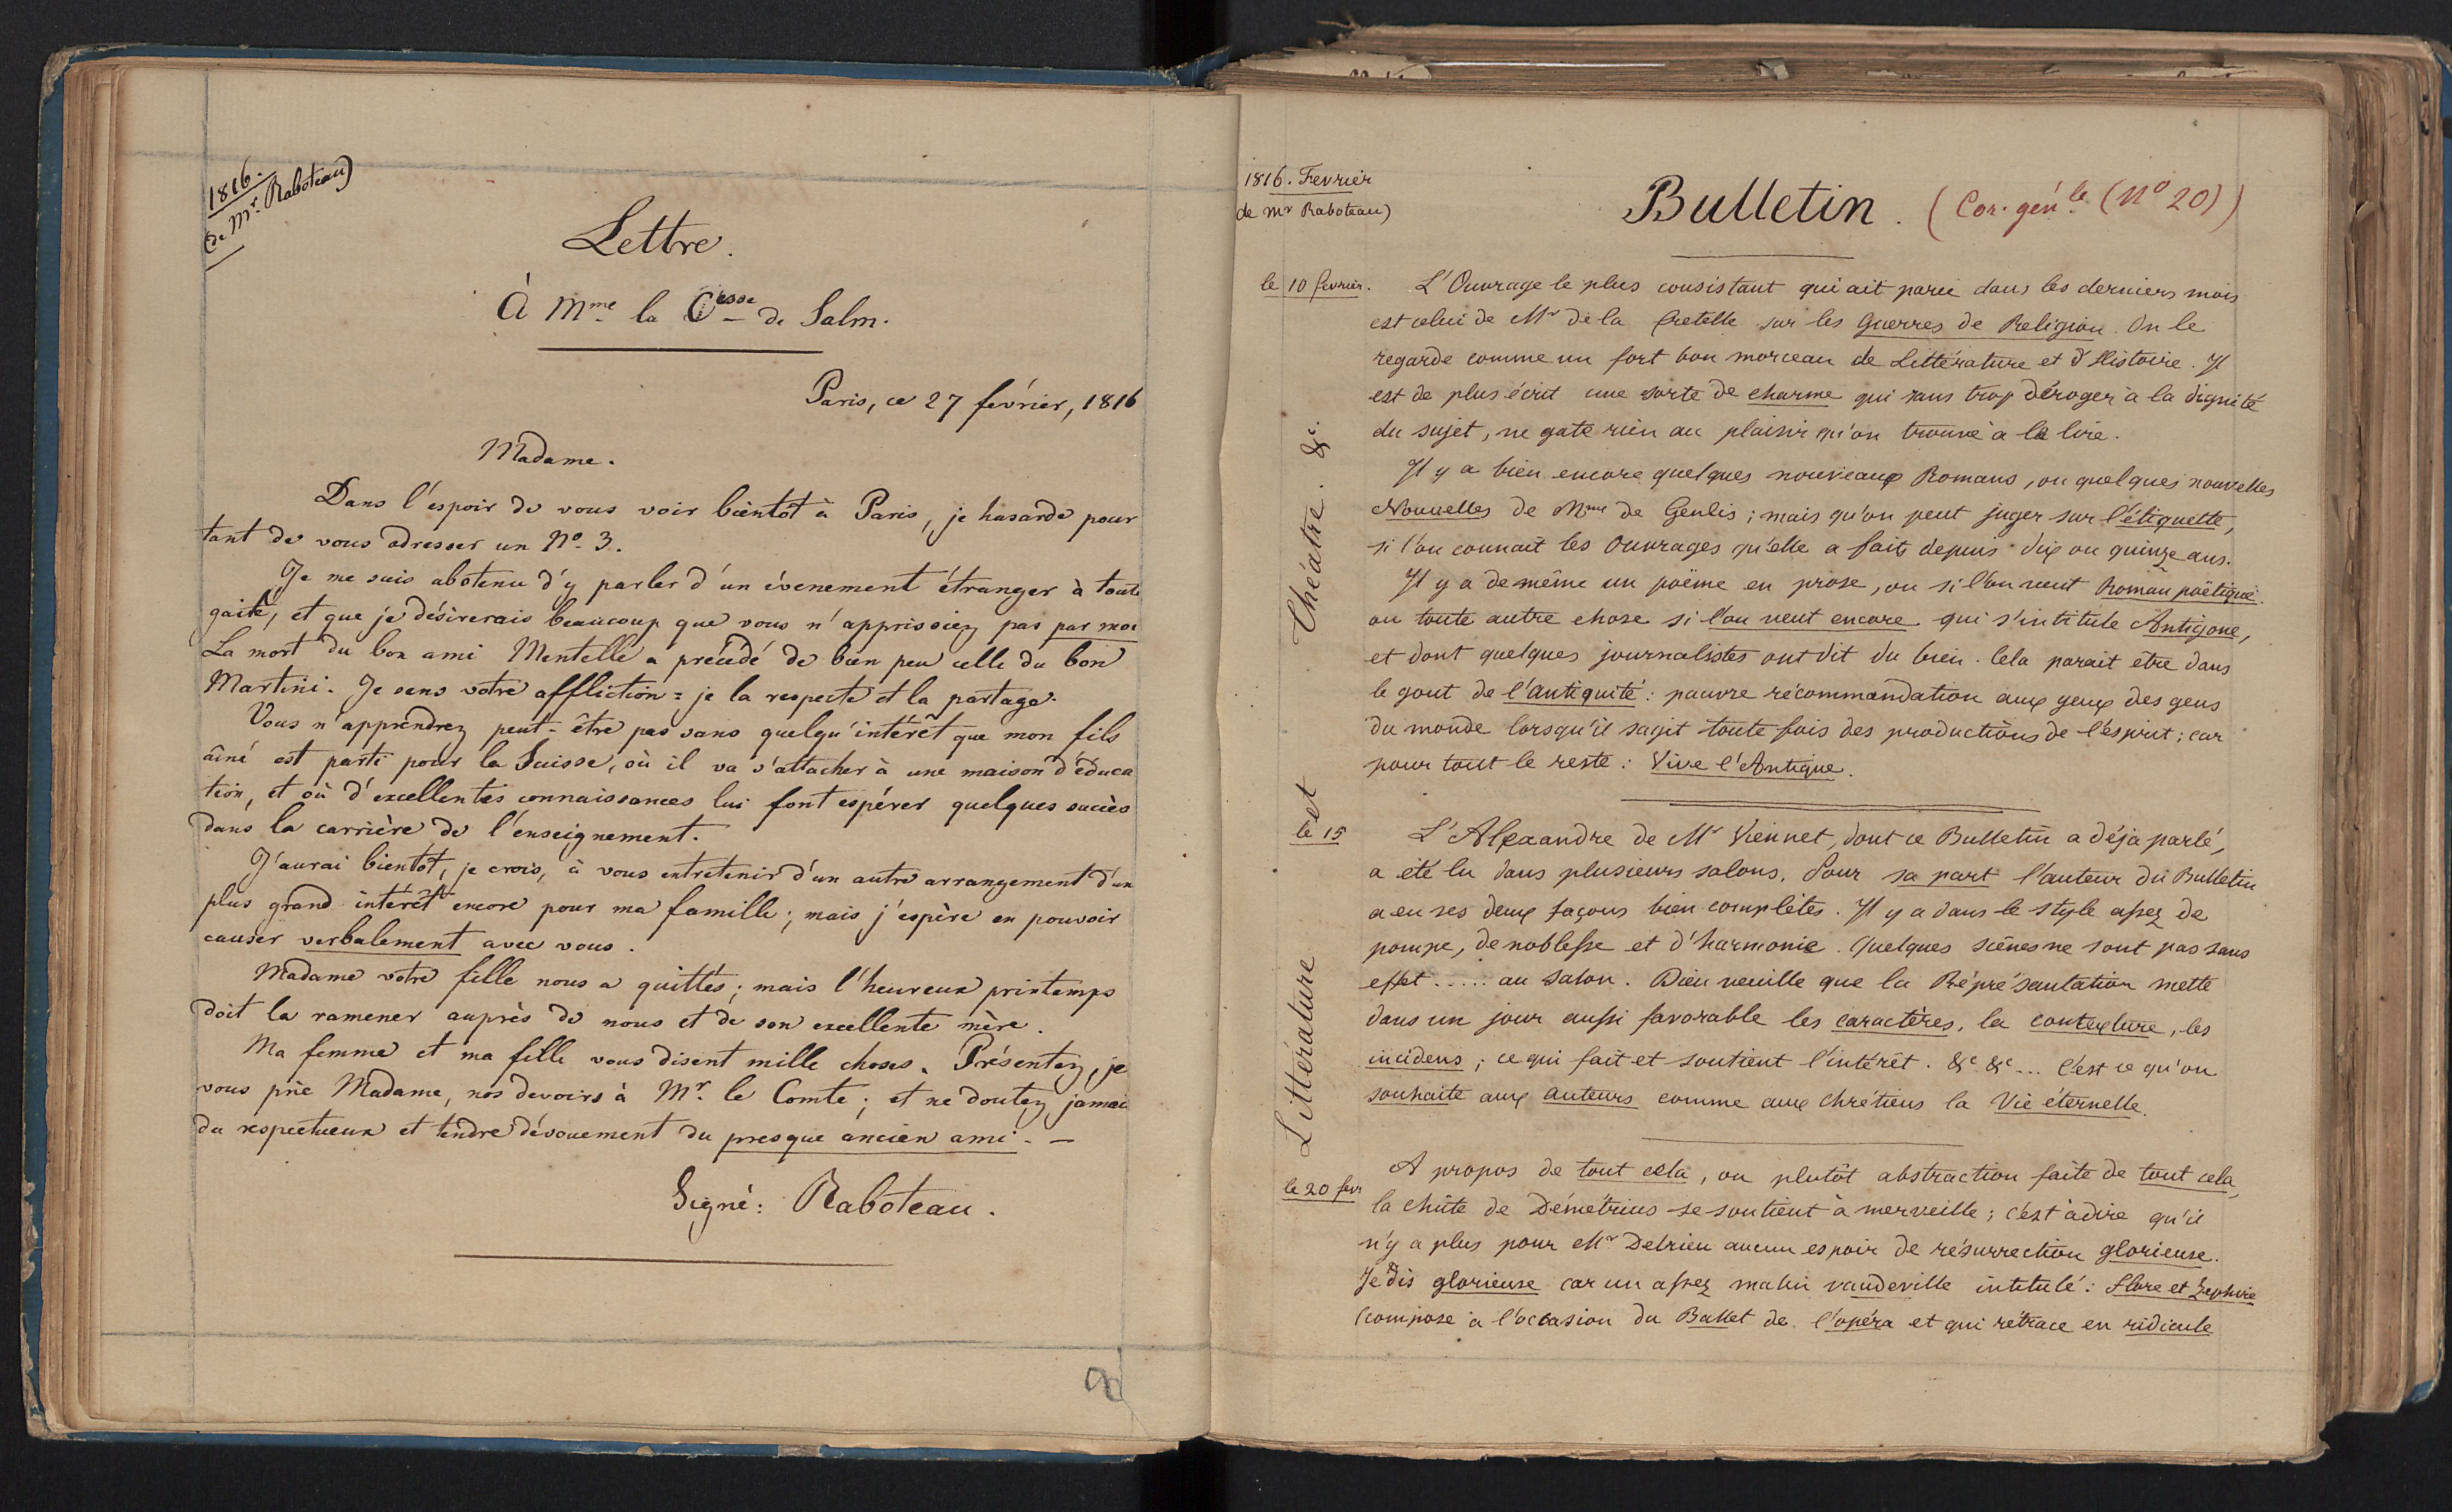 1816.
(de Mr. Raboteau)
Lettre.
À Mme la Cesse de Salm.
Paris, ce 27 février, 1816
Madame.
Dans l'espoir de vous voir bientôt à Paris, je hasarde pour
tant de vous adresser un No. 3.
Je me suis abstenu d'y parler d'un évenement étranger à toute
gaité, et que je désirerais beaucoup que vous n'apprissiez pas par moi
La mort du bon ami Mentelle a précédé de bien peu celle du bon
Martini. Je sens votre affliction = je la respecte et la partage.
Vous n'apprendrez peut-être pas sans quelqu'intérêt que mon fils
aîné est parti pour la Suisse, où il va s'attacher à une maison d'éduca
tion, et où d'excellentes connaissances lui font espérer quelques succès
dans la carrière de l'enseignement.
J'aurai bientôt, je crois, à vous entretenir d'un autre arrangement d'un
plus grand intérêt encore pour ma famille; mais j'espère en pouvoir
causer verbalement avec vous.
Madame votre fille nous a quittés; mais l'heureux printemps
doit la ramener auprès de nous et de son excellente mère.
Ma femme et ma fille vous disent mille choses. Présentez, je
vous prie Madame, nos devoirs à Mr. le Comte; et ne doutez jamais
du respectueux et tendre dévouement du presque ancien ami. —
Signé: Raboteau.
1816. Fevrier
de mr Raboteau)
Bulletin. (Cor. génle (No 20))
Littérature et Théatre. &c.
le 10 fevrier. L'Ouvrage le plus consistant qui ait paru dans les derniers mois
est celui de Mr de la Cretelle sur les Guerres de Religion. On le
regarde comme un fort bon morceau de Littérature et d'Histoire. Il
est de plus écrit une sorte de charme qui sans trop déroger à la dignité
du sujet, ne gate rien au plaisir qu'on trouve à le lire.
Il y a bien encore quelques nouveaux Romans, ou quelques nouvelles
Nouvelles de Mme de Genlis; mais qu'on peut juger sur l'étiquette,
si l'on connait les Ouvrages qu'elle a faits depuis dix ou quinze ans.
Il y a de même un poëme en prose, ou si l'on veut Roman poëtique
ou toute autre chose si l'on veut encore qui s'intitule Antigone,
et dont quelques journalistes ont dit du bien. Cela parait etre dans
le gout de l'antiquité: pauvre récommandation aux yeux des gens
du monde lorsqu'il sagit toute fois des productions de l'ésprit; car
pour tout le reste: Vive l'Antique.
le 15 L'Alexandre de Mr Viennet, dont ce Bulletin a déja parlé,
a été lu dans plusieurs salons. Pour sa part l'auteur du Bulletin
a eu ses deux façons bien complètes. Il y a dans le style assez de
pompe, de noblesse et d'harmonie. Quelques scènes ne sont pas sans
effet ..... au salon. Dieu veuille que la Répré santation mette
dans un jour aussi favorable les caractères, la contexture, les
incidens; ce qui fait et soutient l'intérêt. &c &c... C'est ce qu'on
souhaite aux auteurs comme aux chrétiens la Vie éternelle.
le 20 fevr A propos de tout cela, ou plutôt abstraction faite de tout cela,
la chûte de Démétrius se soutient à merveille; c'est à dire qu'il
n'y a plus pour Mr Delrieu aucun espoir de résurrection glorieuse.
Je dis glorieuse car un assez malin vaudeville intitulé: Flore et Zephire
(compose à l'occasion du Ballet de l'opéra et qui rétrace en ridicule